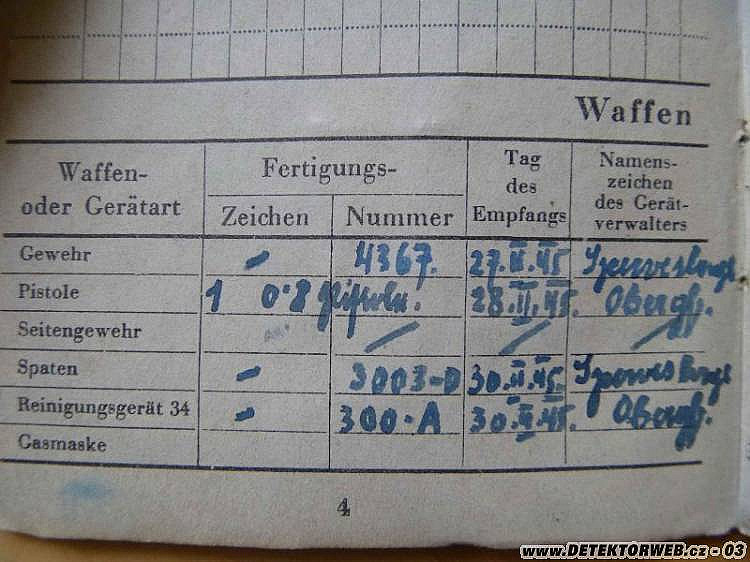 Waffen
Waffen- oder Gerätart
Fertigungs-
Zeichen
Nummer
Tag des Empfangs
Namens- zeichen des Gerät- verwalters
Gewehr - 4367. 27.II.45
Pistole 1 0.8 28.II.45. Obergf.
Seitengewehr
Spaten - 3003-D 30.II.45.
Reinigungsgerät 34 - 300.A 30.II.45. Obergf.
Gasmaske
4
www.DETEKTORWEB.cz - 03